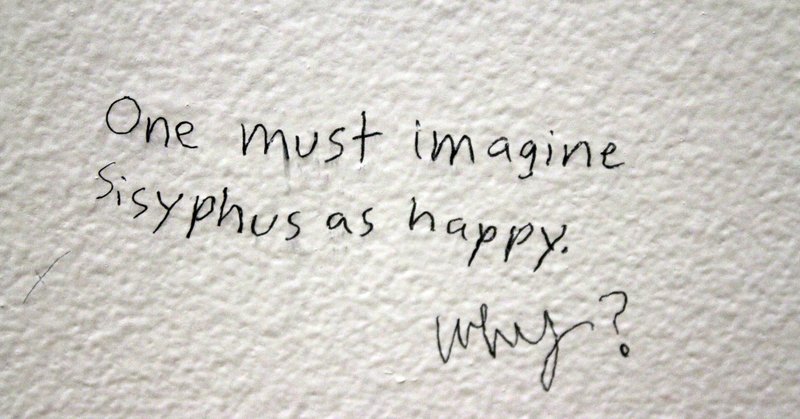 One must imagine
Sisyphus as happy.
Why?